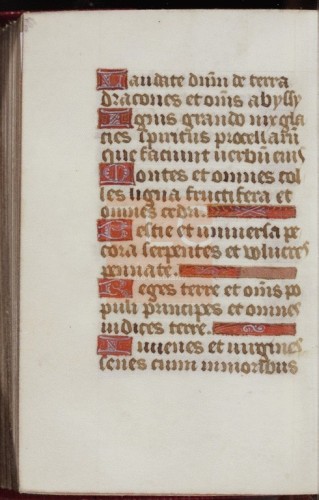 Laudate dnm de terra
dracones et oms abyssy
Ignis grando nix gla
cies spiritus procellarum
que faciunt verbum eius
Montes et omnes col
les ligna fructifera et
omnes cedri
Bestie et universa pe
cora serpentes et volucres
pennate.
Reges terre et oms po
puli principes et omnes
iudices terre.
Iuuenes et uirgines
senes cum iunioribus